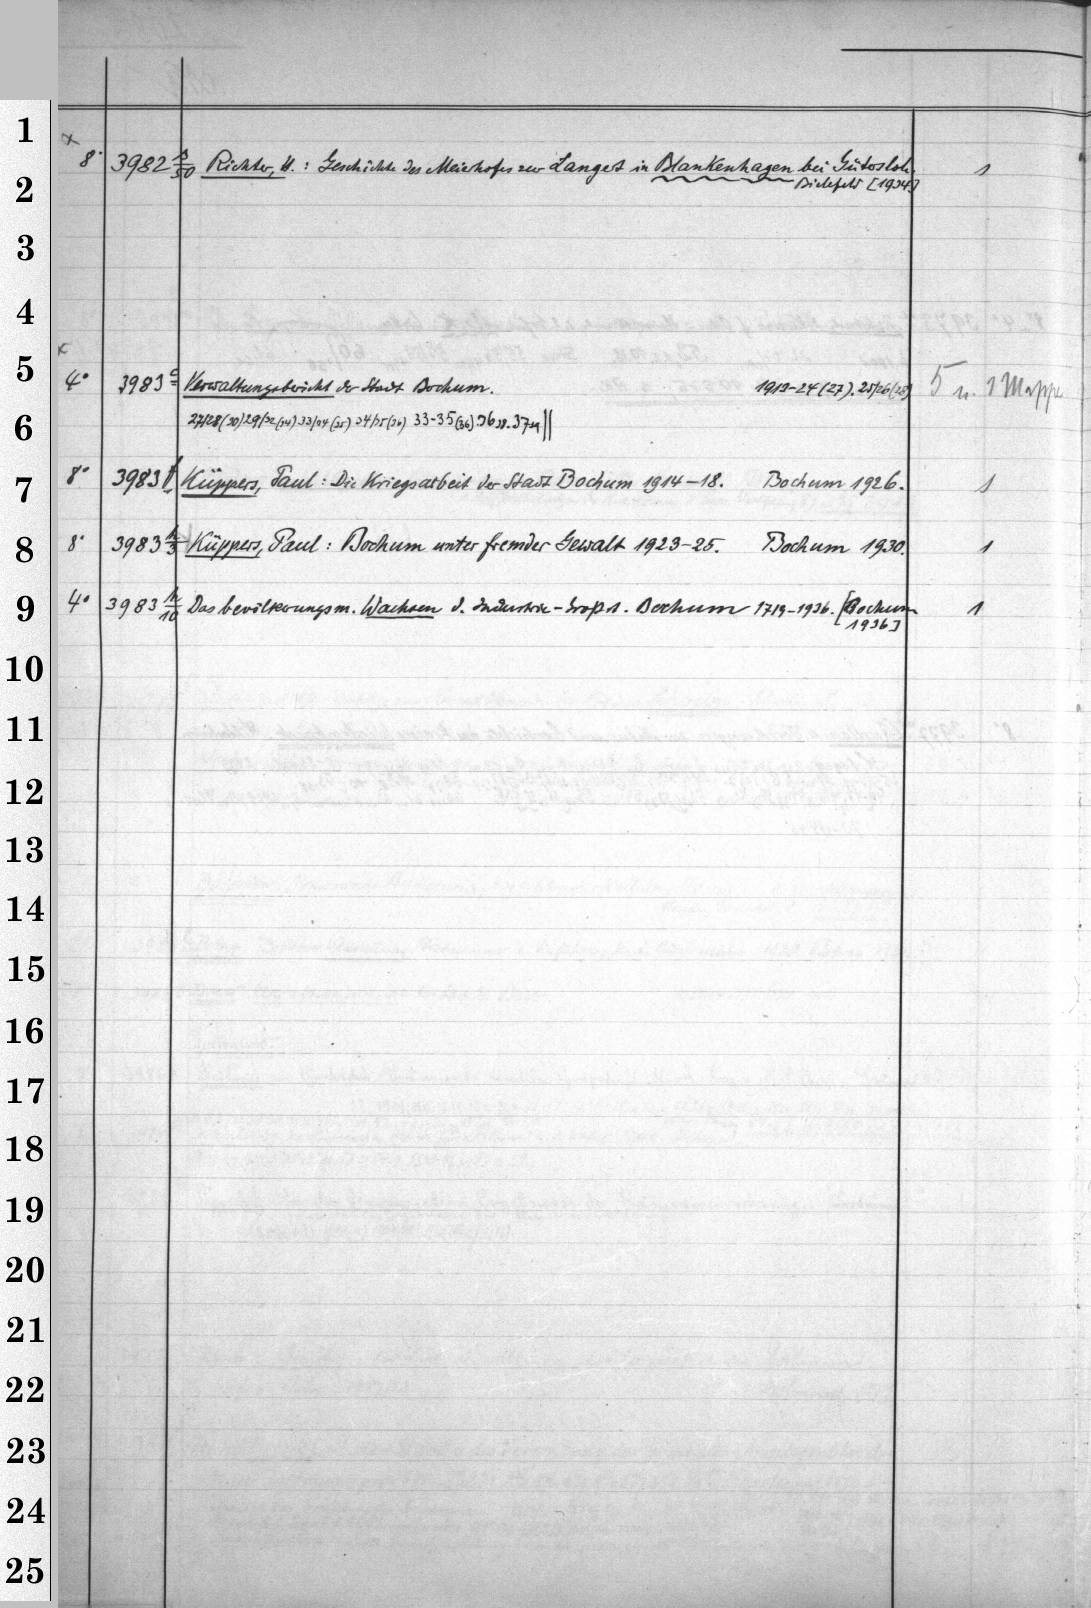 1
x
8° 3982 s/50 Richter, H.: Geschichte des Meierhofes zur Langert in Blankenhagen bei Gütersloh. 1
2
Bielefeld [1934]
3
4
5
x
4° 3983 c Verwaltungsbericht der Stadt Bochum. 1919-24 (27). 25/26 (28) 5 u. 1 Mappe
6
27/28 (30) 29/32 (34) 33/34 (35) 34/35 (36) 33-35 (36)
7
8° 3983 f Küppers, Paul: Die Kriegsarbeit der Stadt Bochum 1914-18. Bochum 1926. 1
8
8° 3983 h/3 Küppers, Paul: Bochum unter fremder Gewalt 1923-25. Bochum 1930. 1
9
4° 3983 h/10 Das bevölkerungsm. Wachsen d. Industrie-Großst. Bochum 1719-1936. [Bochum 1
1936]
10
11
12
13
14
15
16
17
18
19
20
21
22
23
24
25